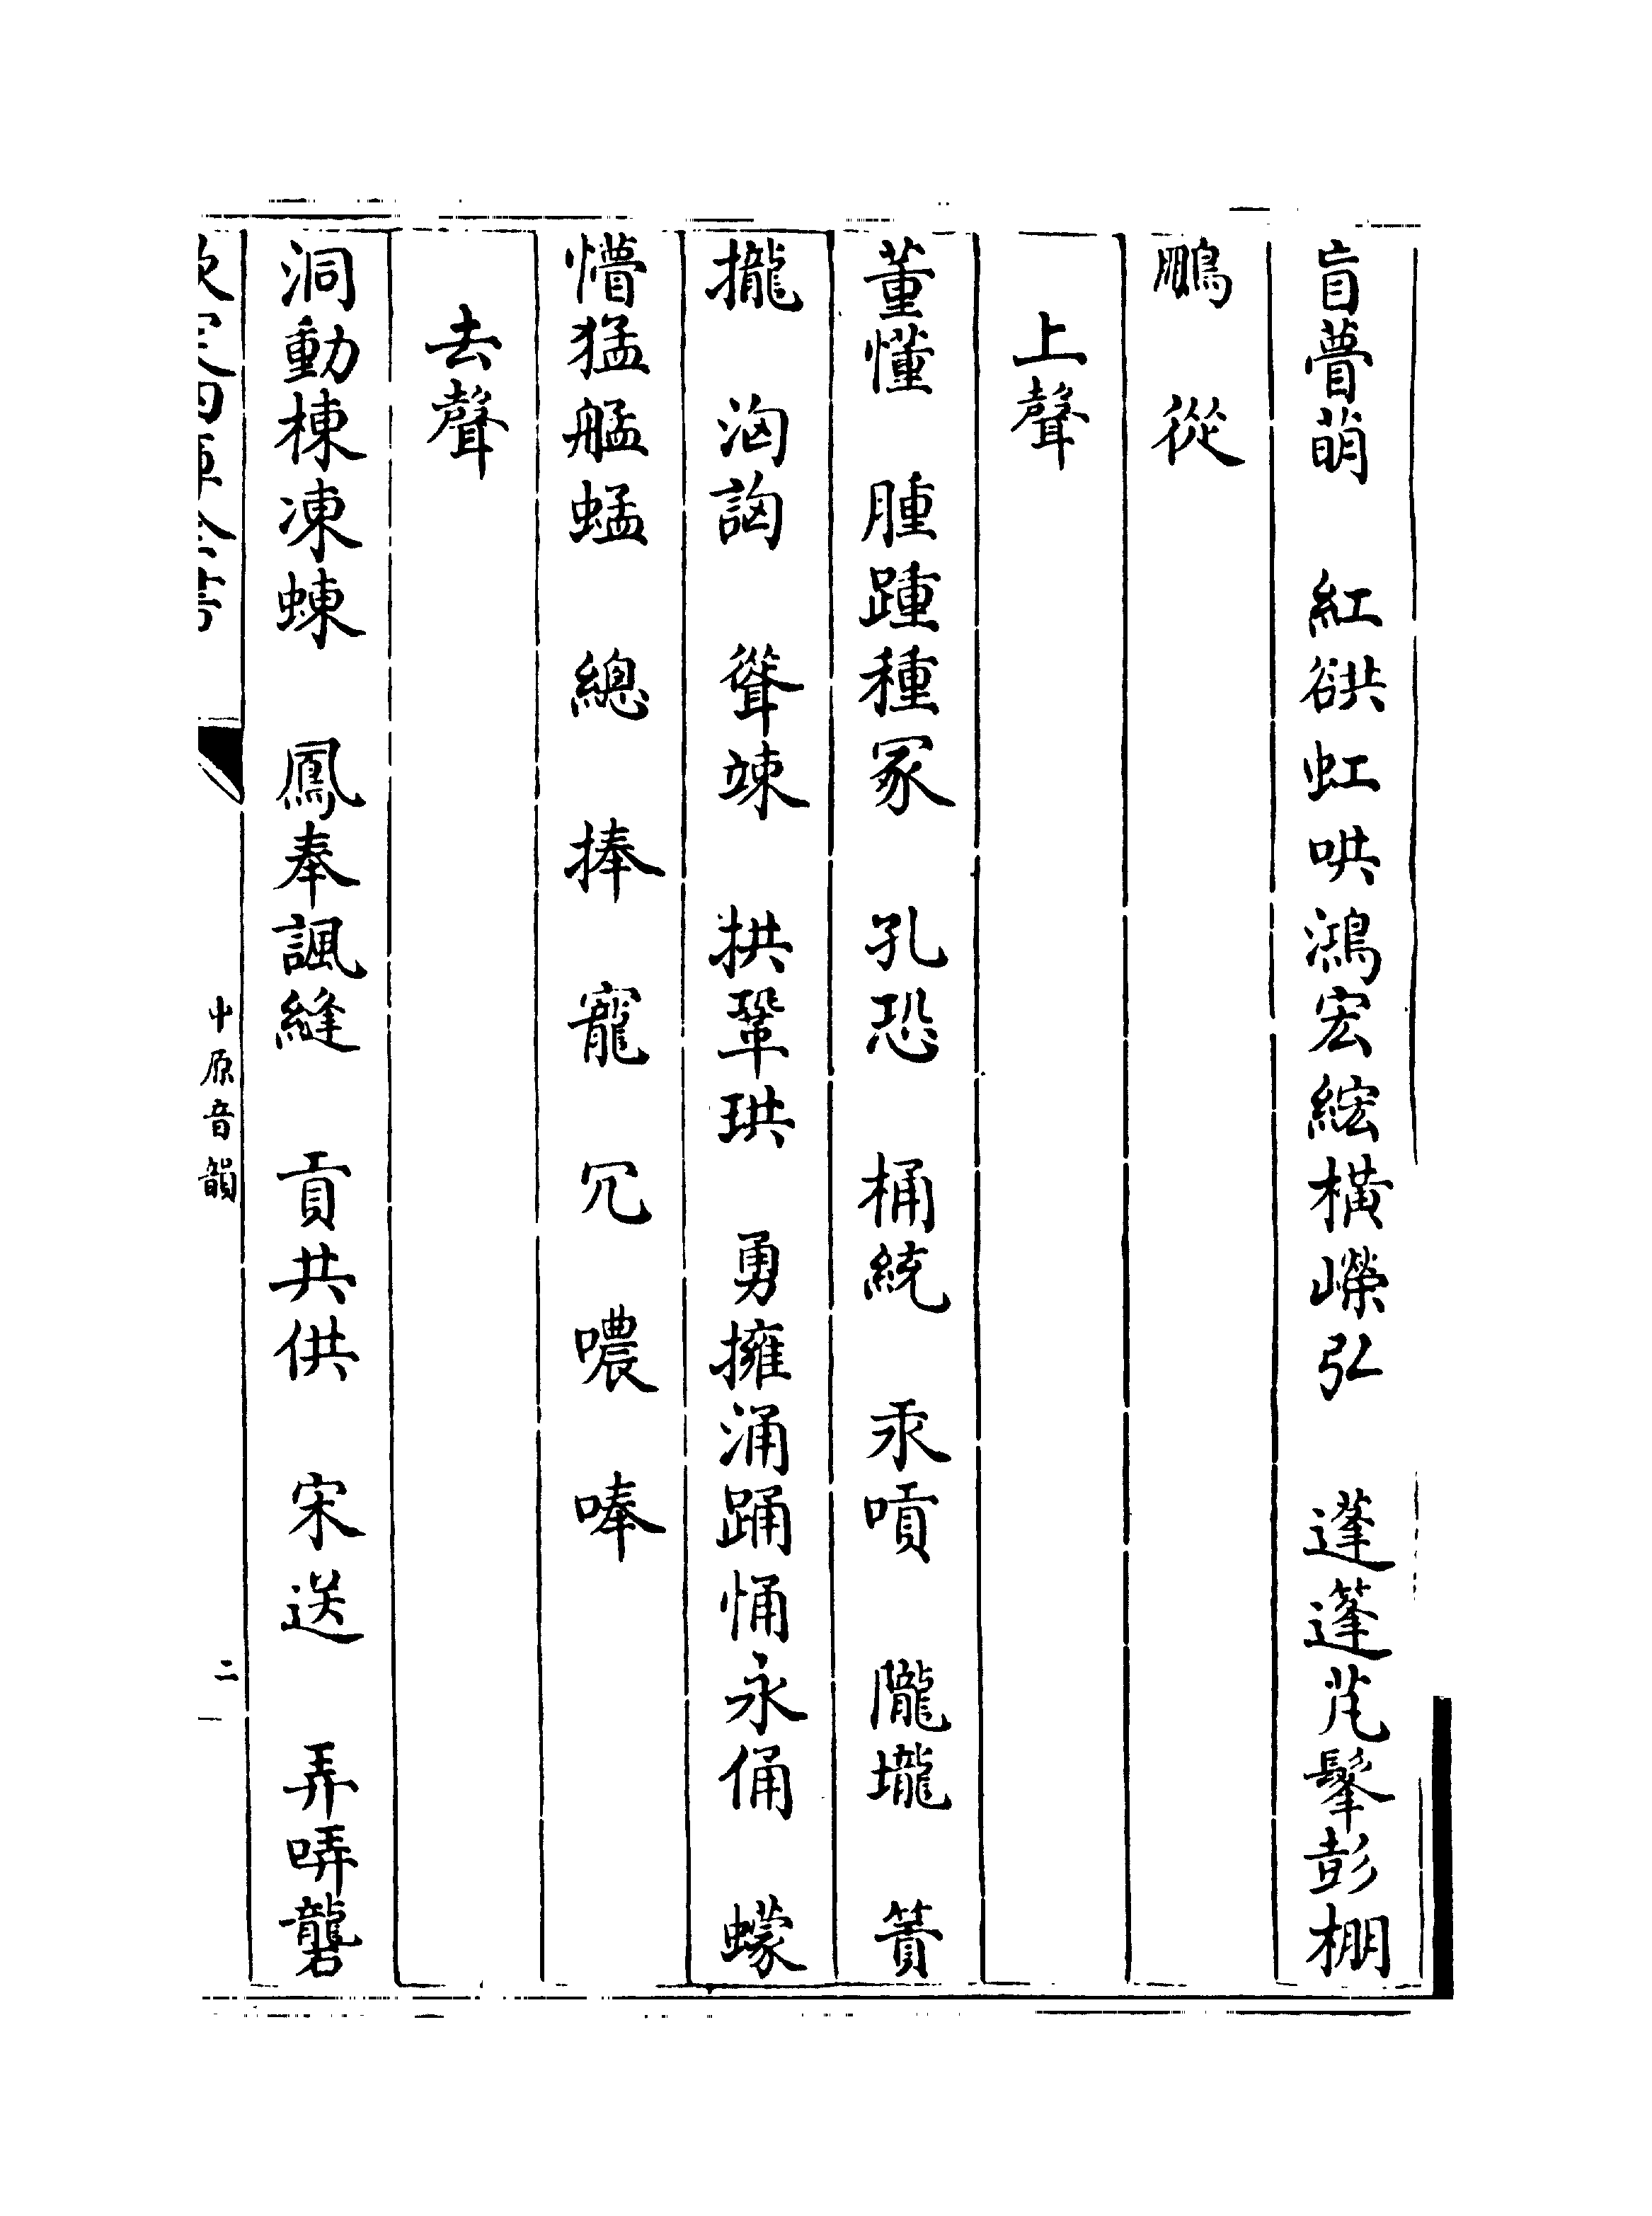 盲瞢萌　紅谼虹哄鴻宏綋橫嶸弘　蓬篷芃髼彭棚
鵬　從
上聲
董懂　腫踵種冢　孔恐　桶統　汞嗊　隴壠　簣
攏　洶詾　聳竦　拱鞏珙　勇擁涌踊恿永俑　蠓
懵猛艋蜢　總　捧　寵　冗　噥　唪
去聲
洞動棟凍蝀　鳳奉諷縫　貢共供　宋送　弄哢礱
欽定四庫全書　中原音韻　二